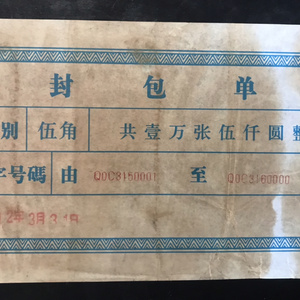 封包单
别 伍角 共壹万张伍仟圆整
字号碼 由 Q0C3150001 至 Q0C3160000
12年3月31日